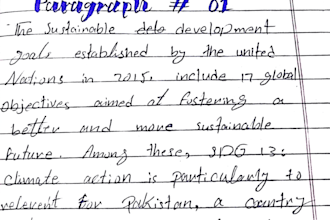 Paragraph # 01
The Sustainable delo development
goals established by the united
Nations in 2015, include 17 global
objectives aimed at fostering a
better and more sustainable
future. Among these, SDG 13:
climate action is particularly to
relevent for Pakistan, a country